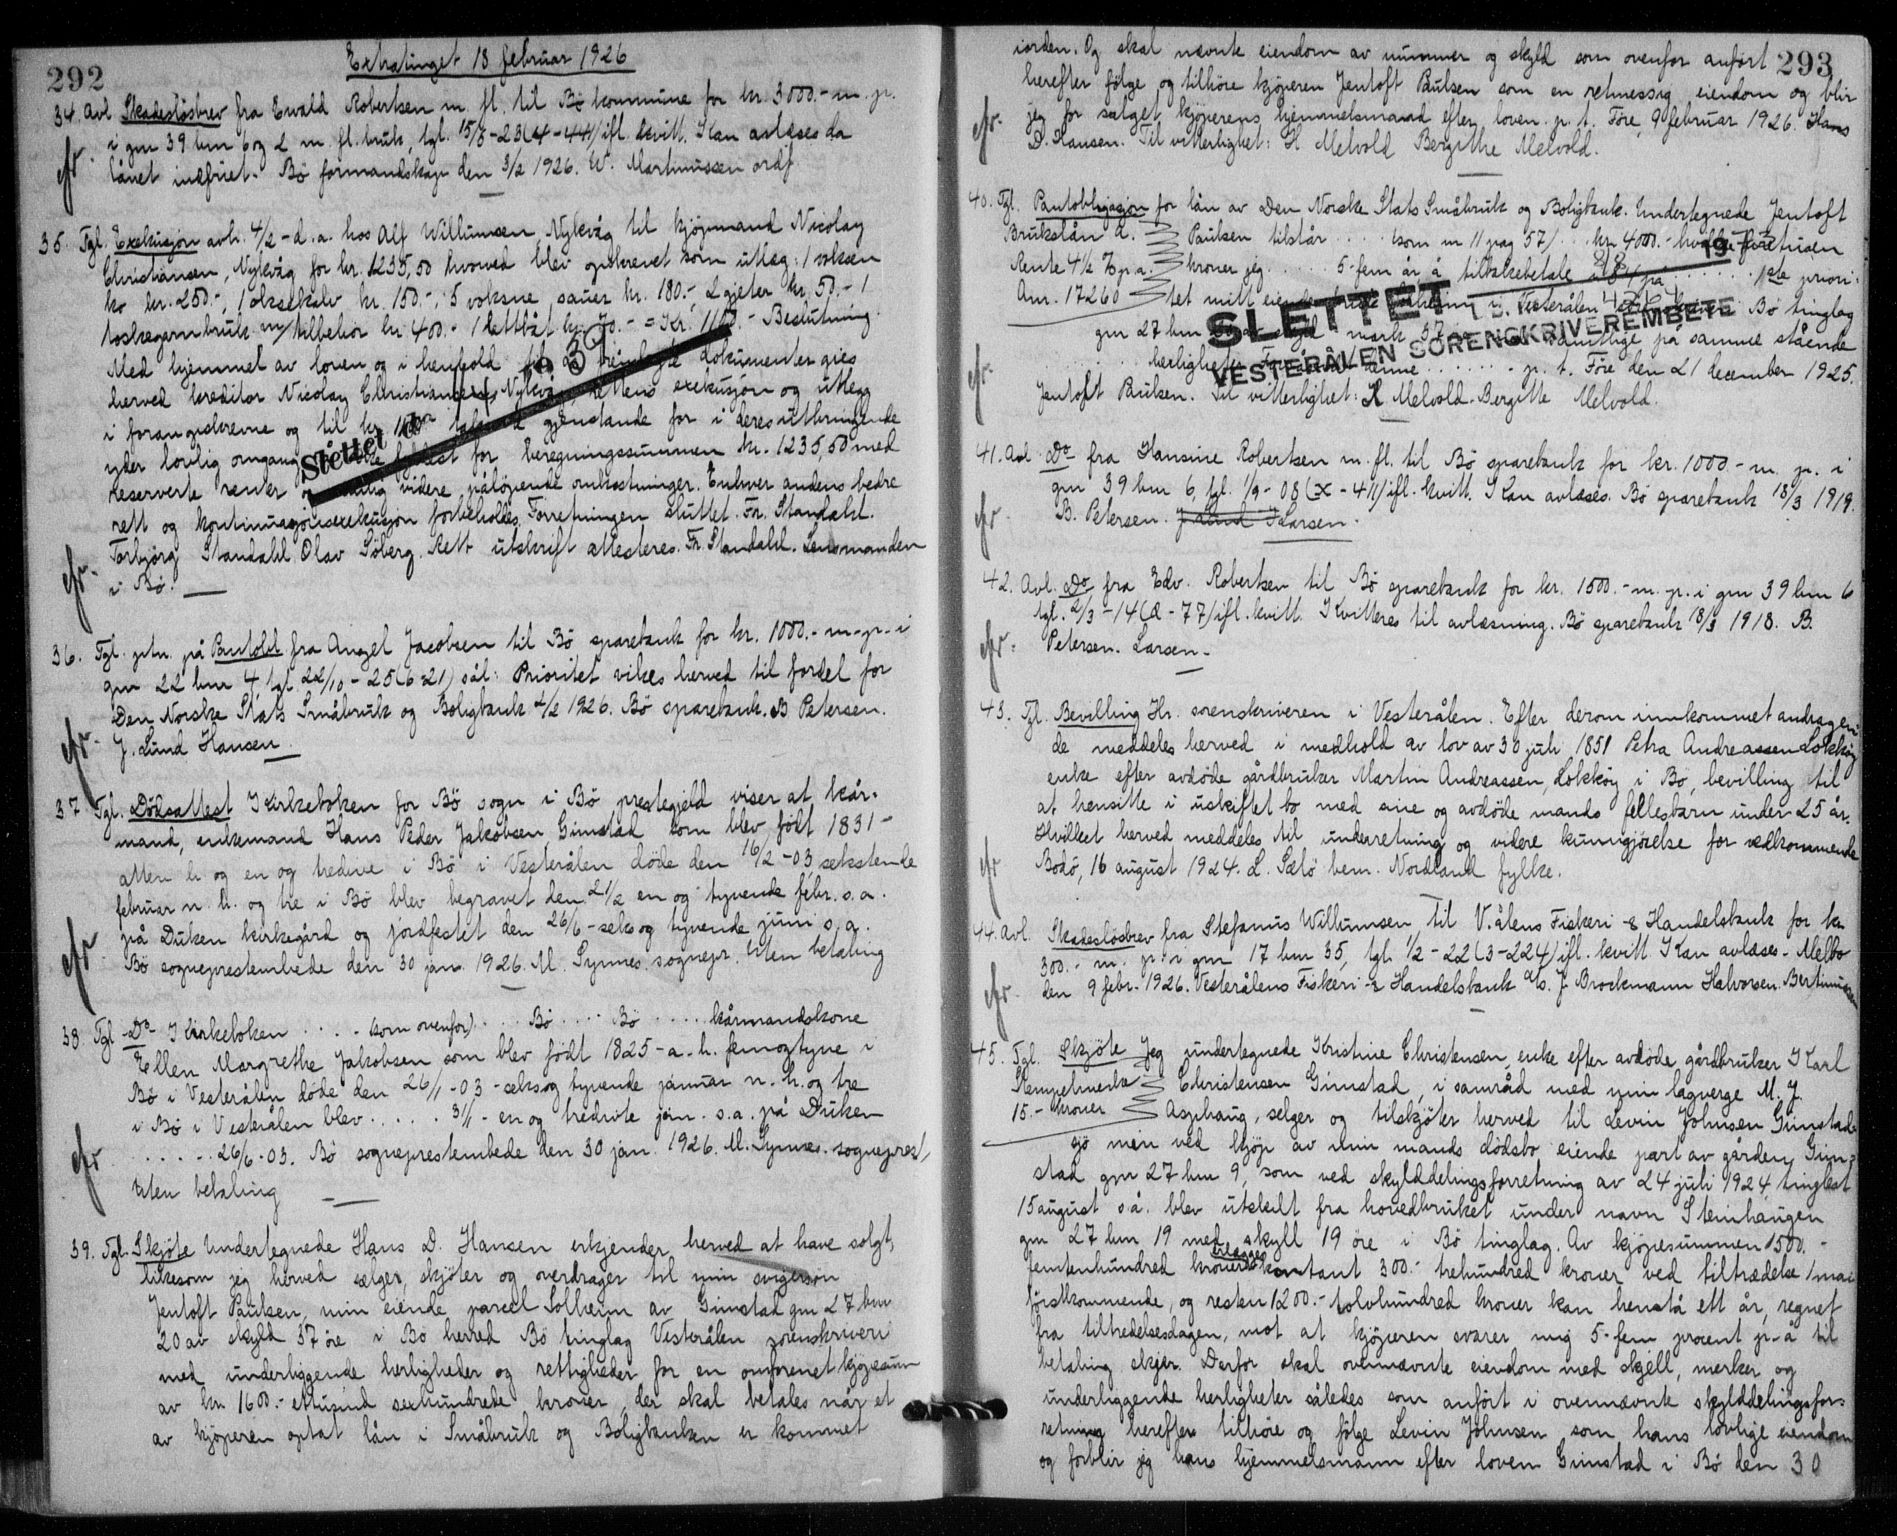 292
Extratinget 13 februar 1926
34. Avl. Skadesløsbrev fra Ewald Robertsen m. fl. til Bø kommune for kr. 3000.- m. p.
i gnr 39 bnr 6 og 2 m. fl. bruk, tgl. 15/8-23 (4-44) ifl. kvitt. Kan avlæses da
lånet indfriet. Bø formandskap den 3/2 1926. W. Martinussen ordf.
35. Tgl. Exekusjon avh. 4/2 - d.a. hos Alf Willumsen Nykvåg til kjøpmand Nicolay
Christiansen, Nykvåg for kr. 1235,50 hvorved blev opskrevet som utlæg: 1 voksen
ko kr. 250.-, 1 oksekalv kr. 150.-, 5 voksne sauer kr. 180.- 2 gjeter kr. 50.- 1
torskegarnbruk m/tilbehør kr. 400.- 1 lettbåt kr. 70.- = Kr. 1100.- Beslutning.
Med hjemmel av loven og i henhold til de fremlagte dokumenter gies
herved kreditor Nicolay Christiansen, Nykvåg, rettens exekusjon og utlegg
i foranskrevne og til kr. 1100 gjenstande for i deres utbringende
under lovlig omgang for beregningssummen kr. 1235,50 med
reserverte renter videre påløpende omkostninger. Enhver andens bedre
rett og kontinuasjonsexekusjon forbeholdes. Forretningen sluttet. Fr. Standahl.
Torbjørg Standahl Olav Søberg. Rett utskrift attesteres. Fr. Standahl. Lensmanden
i Bø.
Slettet
36. Tgl. ptn. på Pantobl fra Angel Jacobsen til Bø sparebank for kr. 1000.- m-p- i
gnr 22 bnr 4, tgl. 22/10-25 (6-21) sål: Prioritet vikes herved til fordel for
Den Norske Stats Småbruk og Boligbank 4/2 1926. Bø sparebank. B Petersen.
J. Lund Hansen
37 Tgl. Dødsattest I Kirkeboken for Bø sogn i Bø prestegjeld viser at kår-
mand, enkemand Hans Peder Jakobsen Gimstad som blev født 1831-
atten h. og en og tredive i Bø i Vesterålen døde den 16/2-03, sekstende
februar n. h. og tre i Bø blev begravet den 21/2 en og tyvende febr. s. a.
på Duken kirkegård og jordfestet den 26/6 - seks og tyvende juni s. a.
Bø sogneprestembede den 30 jan. 1926. M. Synnes. sognepr. Uten betaling
38. Tgl Do I Kirkeboken . . . . (som ovenfor) . . . Bø . . . . Bø . . . . . kårmandskone
Ellen Margrethe Jakobsen som blev født 1825-a.h. femogtyve i
Bø i Vesterålen døde den 26/1-03 - seksog tyvende januar n. h. og tre
i Bø i Vesterålen blev . . . . . 31/1 - en og tredivte jan. s. a. på Duken
. . . . - 26/6-03. Bø sogneprestembede den 30 jan. 1926. M. Synnes. sogneprest/
Uten betaling
39. Tgl. Skjøte Undertegnede Hans D. Hansen erkjender herved at have solgt,
likesom jeg herved sælger, skjøter og overdrager til min svigersøn
Jentoft Paulsen, min eiende parcel Solheim av Gimstad gnr 27 bnr
20 av skyld 37 øre i Bø herred Bø tinglag Vesterålen sorenskriveri
med underliggende herligheder og rettigheder for en omforenet kjøpesum
av kr. 1600.- ettusind sexhundrede kroner, der skal betales når et
av kjøperen optat lån i Småbruk og Boligbanken er kommet
293
iorden. Og skal nævnte eiendom av nummer og skyld som ovenfor anført
herefter følge og tilhøre kjøperen Jentoft Paulsen som en retmessig eiendom og blir
jeg for salget kjøperens hjemmelsmand efter loven. p. t. Føre, 9 februar 1926. Hans
D. Hansen. Til vitterlighet: K Melvold Bergithe Melvold.
40. Tgl. Pantobligasjon for lån av Den Norske Stats Småbruk og Boligbank. Undertegnede Jentoft
Brukslån A. Paulsen tilstår . . . . (som nr 11 pag 57) . . . kr. 4000.-
Rente 4 1/2 % p.a. kroner jeg . . . . . 5-fem år å tilbakebetale . . . . 1ste priori-
Anr. 17260 tet mitt eiende Vesterålen Bø tinglag
gnr 27 bnr mark 37 samtlige på samme stående
herligheter . . . . . p. t. Føre den 21 december 1925.
Jentoft Paulsen. Til vitterlighet: K Melvold. Bergitte Melvold.
SLETTET
VESTERÅLEN SORENSKRIVEREMBETE
41. Avl. Do fra Hansine Robertsen m. fl. til Bø sparebank for kr. 1000.- m. p. i
gnr 39 bnr 6, tgl. 1/9-08 (X-411) ifl. kvitt. Kan avlæses. Bø sparebank 18/3 1919.
B. Petersen. J Lund Larsen.
42. Avl. Do fra Edv. Robertsen til Bø sparebank for kr. 1500.- m. p. i gnr 39 bnr 6
tgl. 2/3-14 (Q-77) ifl. kvitt. Kvitteres til avlæsning. Bø sparebank 18/3 1918. B.
Petersen. Larsen.
43. Tgl. Bevilling Hr. sorenskriveren i Vesterålen. Efter derom innkommet andragen-
de meddeles herved i medhold av lov av 30 juli 1851 Petra Andreassen Lokkøy
enke efter avdøde gårdbruker Martin Andreassen, Lokkøy i Bø, bevilling til
at hensitte i uskiftet bo med sine og avdøde mands fellesbarn under 25 år.
Hvilket herved meddeles til underretning og videre kunngjørelse for vedkommende
Bodø, 16 august 1924. L. Sælø bem. Nordland fylke.
44. Avl. Skadesløsbrev fra Stefanus Willumsen til V.ålens Fiskeri & Handelsbank for kr.
300.- m. p. i gnr 17 bnr 35, tgl. 1/2-22 (3-224) ifl. kvitt. Kan avlæses. Melbo
den 9 febr. 1926. Vesterålens Fiskeri & Handelsbank A/s. J. Brockmann Halvorsen. Bertinussen
45. Tgl. Skjøte Jeg undertegnede Kristine Christensen, enke efter avdøde gårdbruker Karl
Stempelmerke Christensen Gimstad, i samråd med min lagverge M. J.
15.- kroner Asphaug, selger og tilskjøter herved til Levin Johnsen Gimstad-
sjø min ved kjøp av min mands dødsbo eiende part av gården Gim-
stad gnr 27 bnr 9, som ved skylddelingsforretning av 24 juli 1924 tinglest
15 august s.å. blev utskilt fra hovedbruket under navn Steinhaugen
gnr 27 bnr 19 med skyll 19 øre i Bø tinglag. Av kjøpesummen 1500.-
femtenhundred kroner erlægges kontant 300.- trehundred kroner ved tiltrædelse 1 mai
førstkommende, og resten 1200.- tolvhundred kroner kan henstå ett år, regnet
fra tiltredelsesdagen, mot at kjøperen svarer mig 5-fem procent p-å til
betaling skjer. Derfor skal ovennævnte eiendom med skjell, merker og
underliggende herligheter således som anført i ovennævnte skylddelingsfor-
retning herefter tilhøre og følge Levin Johnsen som hans lovlige eiendom
og forblir jeg hans hjemmelsmann efter loven Gimstad i Bø den 30